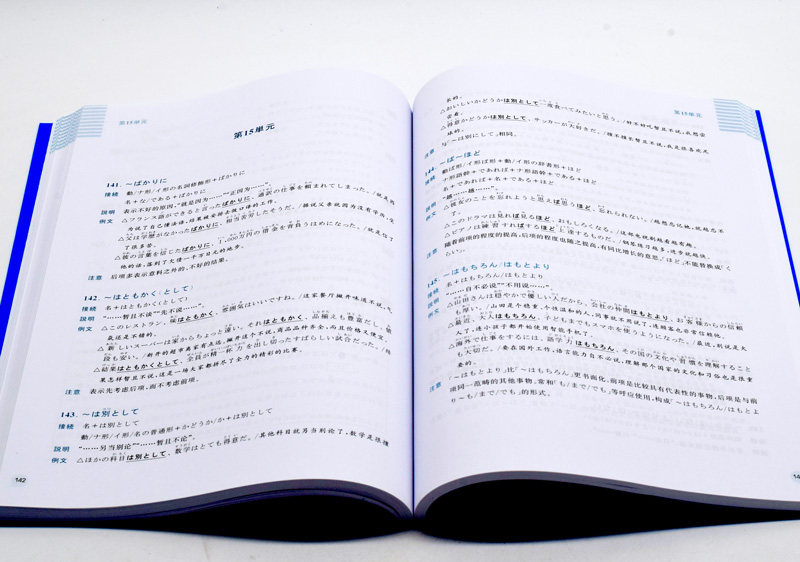 第15単元
第15单元
141. ~ばかりに
接続 動/ナ形/イ形の名詞修飾形+ばかりに
名+な/である+ばかりに
説明 表示不好的原因。"就是因为……""正因为……"。
例文 △フランス語ができると言ったばかりに、通訳の仕事を頼まれてしまった。/就是因
为说了自己懂法语,结果被安排去做口译的工作。
△父は学歴がなかったばかりに、担当苦労したそうだ。/据说父亲就因为没有学历,受
了很多苦。
△彼の言葉を信じたばかりに、1,000万円の借金を背負うはめになった。/就是信了
他的话,落到了欠债一千万日元的地步。
注意 后项多表示意料之外的、不好的结果。
142. ~はともかく(として)
接続 名+はともかく(として)
説明 "……暂且不谈""先不说……"。
例文 △このレストラン、味はともかく、雰囲気はいいですね。/这家餐厅撇开味道不说,气
氛还是不错的。
△新しいスーパーは家からちょっと遠い。それはともかく、品揃えも豊富だし、値
段も安い。/新开的超市离家有点远,撇开这个不说,商品品种齐全,而且价格又便宜。
△結果はともかくとして、全員が精一杯力を出し切ったすばらしい試合だった。/结
果怎样暂且不说,这是一场大家都拼尽了全力的精彩的比赛。
注意 表示先考虑后项,而不考虑前项。
143. ~は別として
接続 名+は別として
動/ナ形/イ形/名の普通形+かどうか/か+は別として
説明 "……另当别论""……暂且不论"。
例文 △ほかの科目は別として、数学はとても得意だ。/其他科目就另当别论了,数学是很擅
142
第15单元
长的。
△おいしいかどうかは別として一度食べてみたいと思う。/好不好吃暂且不说,我想尝
尝看。
△得意かどうかは別として、サッカーが大好きだ。/擅不擅长暂且不说,我是很喜欢足
球的。
注意 与「~は別にして」相同。
144. ~ば~ほど
接続 動ば形/イ形ば形+動/イ形の辞書形+ほど
ナ形語幹+であれば+ナ形語幹+である+ほど
名+であれば+名+である+ほど
説明 "越……越……"。
例文 △彼女のことを忘れようと思えば思うほど、忘れられない。/越想忘记她,就越忘不
了。
△このドラマは見れば見るほど、おもしろくなる。/这部电视剧越看越有趣。
△ピアノは練習すればするほど、上達するものだ。/钢琴练习越多,进步就越快。
注意 随着前项的程度的提高,后项的程度也随之提高,有同比增长的意思。「ほど」不能替换成「く
らい」。
145. ~はもちろん/はもとより
接続 名+はもちろん/はもとより
説明 "……自不必说""不用说……"。
例文 △山田さんは穏やかで優しい人だから、会社の仲間はもとより、お客様からの信頼
も厚い。/山田是个稳重、个性温和的人,同事就不用说了,连顾客也非常信赖他。
△最近、大人はもちろん、子どもまでもスマホを使うようになった。/最近,别说是大
人了,连小孩子都开始使用智能手机了。
△海外で仕事をするには、語学力はもちろん、その国の文化や習慣を理解すること
も大切だ。/要在国外工作,语言能力自不必说,理解那个国家的文化和习俗也是很重
要的。
注意 「~はもとより」比「~はもちろん」更书面化。前项是比较具有代表性的事物,后项是与前
项同一范畴的其他事物。常和「も/まで/でも」等呼应使用,构成「~はもちろん/はもとよ
り~も/まで/でも」的形式。